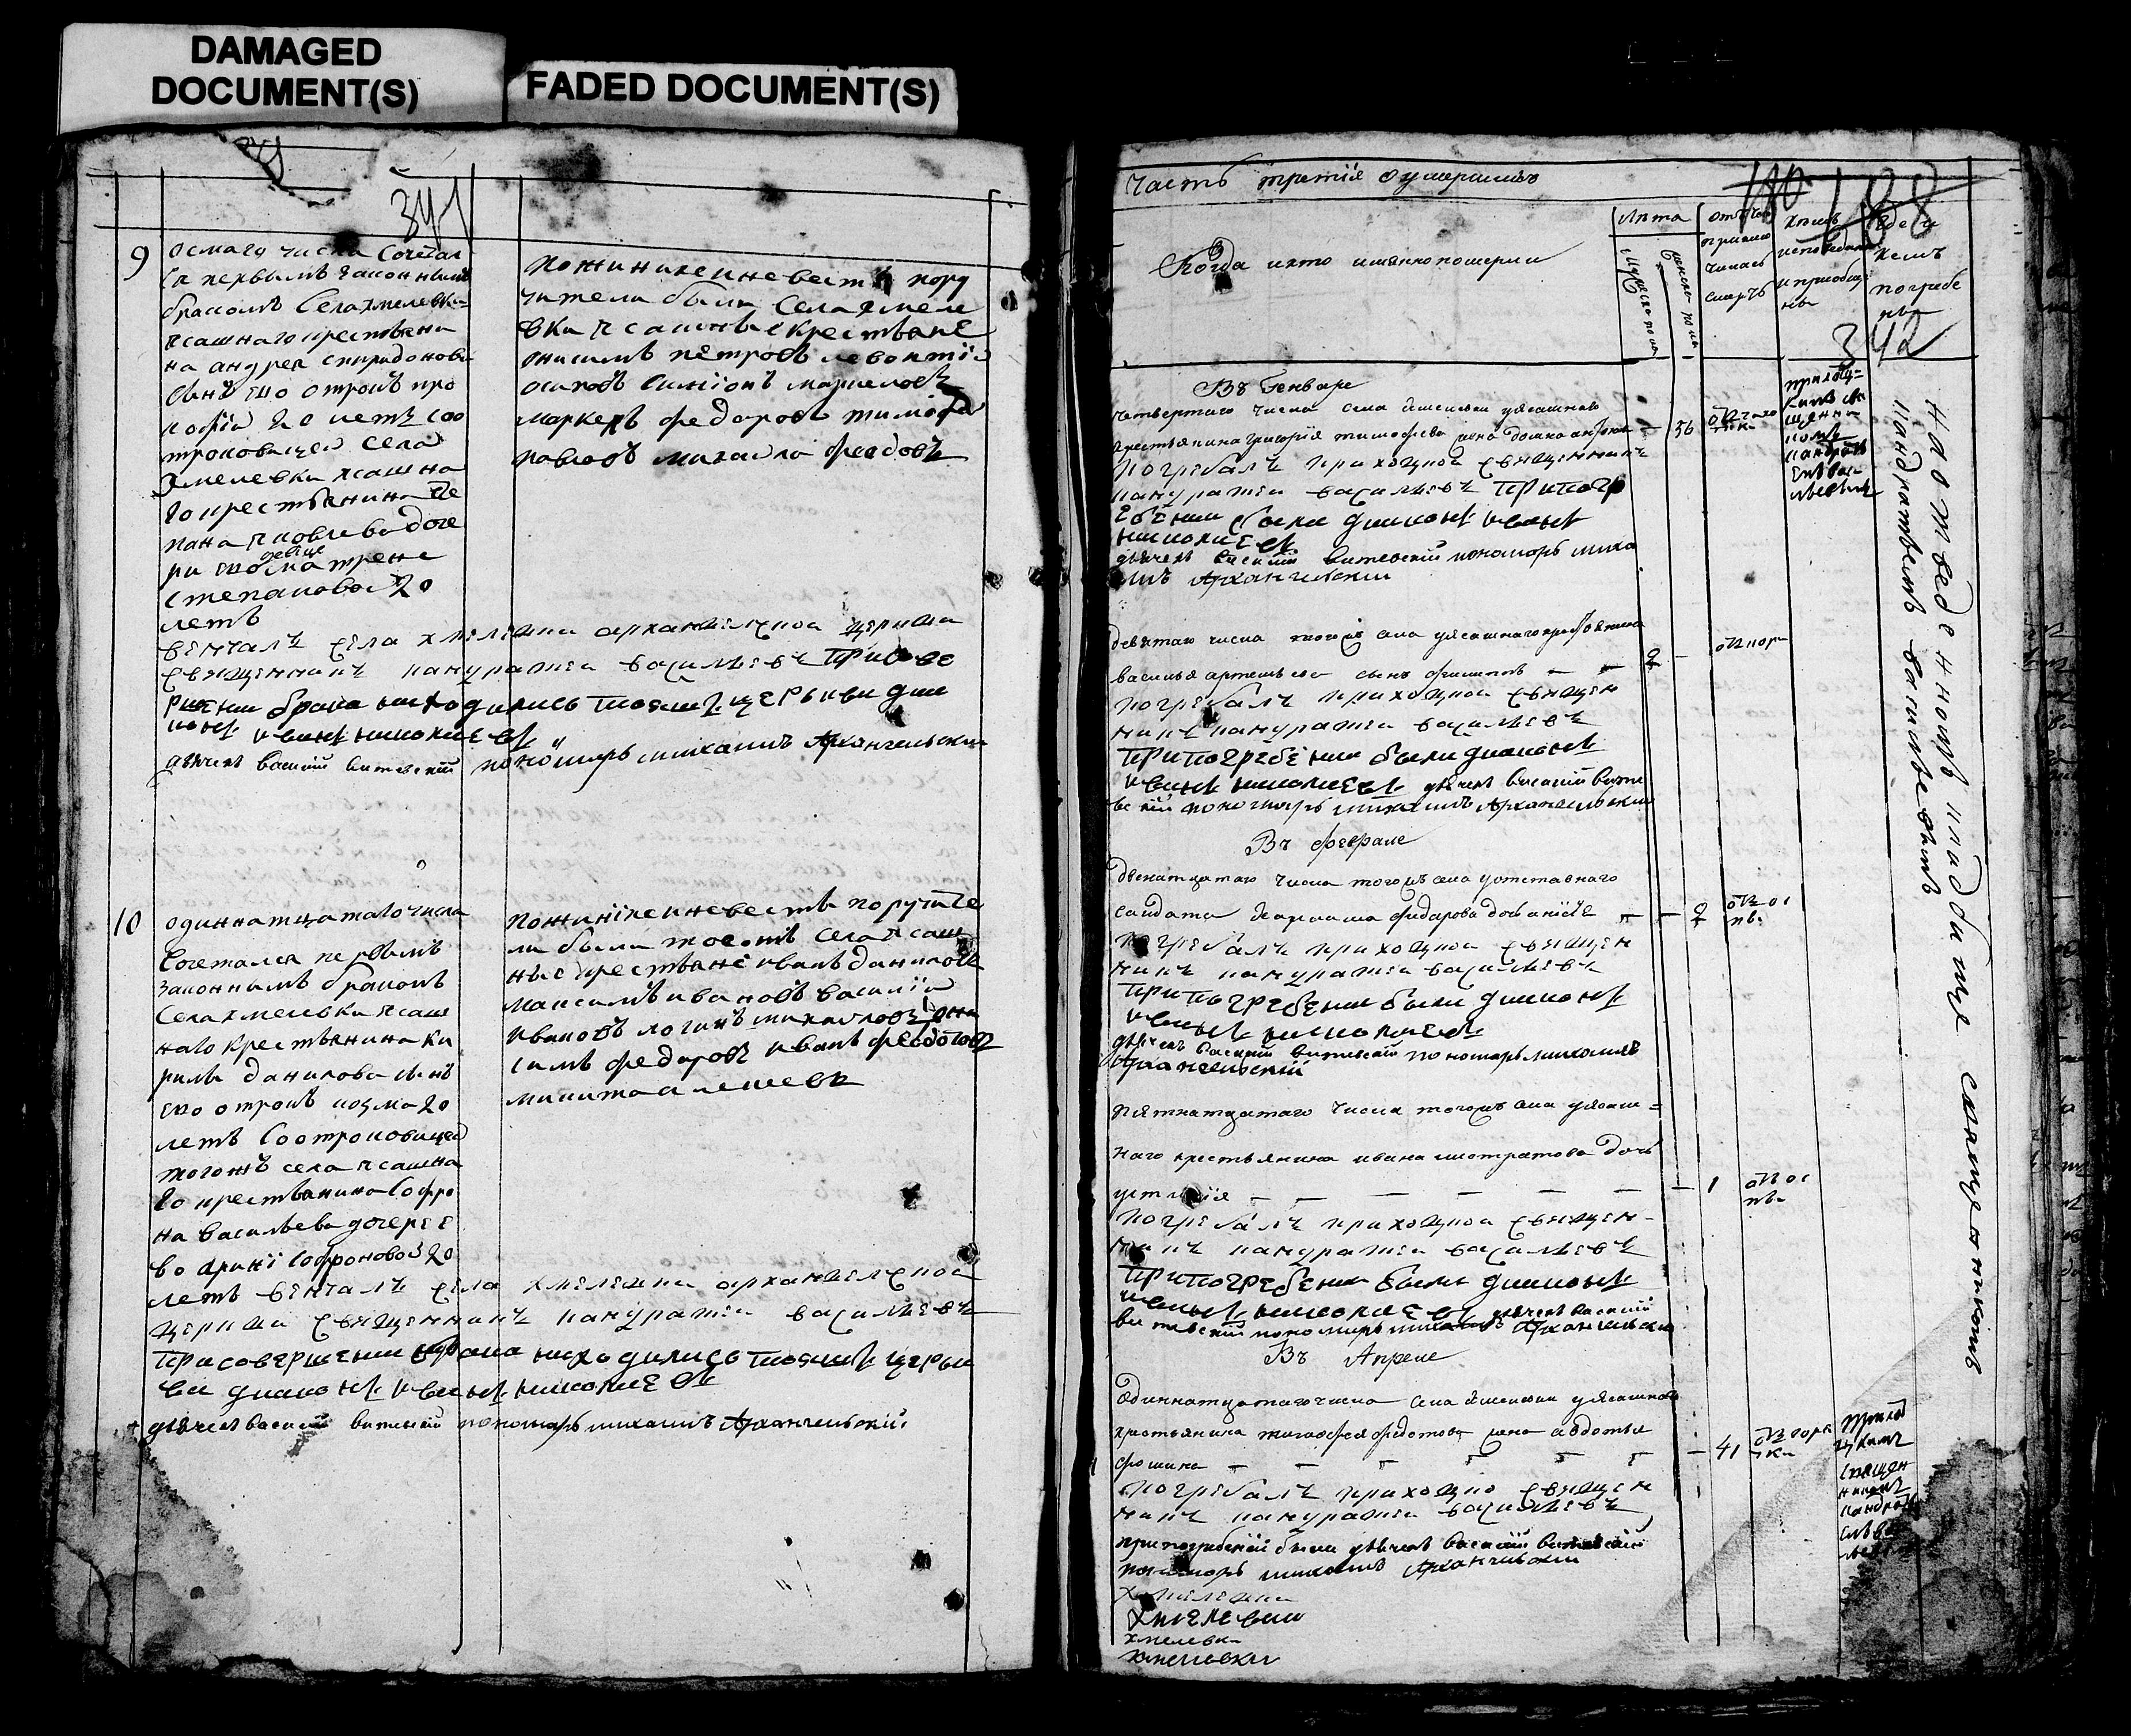 DAMAGED
DOCUMENT(S)
FADED DOCUMENT(S)
341
9
осмаго числа Сочетал
ся первымъ законнымъ
бракомъ Села хмелевки
ясашнаго крестьяна
на андрея спиридонова
сынъ ево отрокъ про
кофiй 20 летъ соо
троковицей села
хмелевки ясашна
го крестьянина сте
пана яковлева доче
девице
ри ево матрене
степановой 20
летъ
венчалъ села хмелевки архангелской церкви
священникъ кандратей василиевъ при сове
ршении брака находились тояжъ церькви дия
конъ иванъ николаевъ
дьячекъ василiй витевский пономарь михаилъ Архангельский
по женихе и невесте пору
чители были Села хмеле
вки ясашные крестьяне
онисимъ петровъ леонтiй
осиповъ Симiонъ маркеловъ
маркелъ федоровъ тимофей
павловъ михайла федовъ
10
одиннатцатаго числа
Сочетался первымъ
законнымъ бракомъ
Села хмелевки ясаш
наго крестьянина ки
рила данилова сынъ
ево отрокъ козма 20
летъ Соотроковицей
тогожъ села ясашна
го крестьянина Софро
на васильева дочерее
во арини Софроновой 20
летъ венчалъ села хмелевки архангелской
церкви священникъ кандратей василиевъ
при совершении брака находились тояжъ церьк
ви диаконъ иванъ николаевъ
дьячекъ василий витевский пономарь михаилъ Архангельскiй
по женихе и невесте поручите
ли были тогожъ села ясаш
ные крестьяне иванъ даниловъ
максимъ ивановъ василiй
ивановъ логинъ михайловъ они
симъ федоровъ иванъ федотовъ
микита алешевъ
Часть третiя о умершихъ
188
Когда и кто имянно померли
Лета
мужеска полу
женска полу
отъ чего
приклю
чилась
смерть
кемъ
исповеданы
и приобще
ны
где и
кемъ
погребе
ны
342
Въ Генваре
четвертаго числа села хмелевки уясашнаго
крестьянина григорiя тимофева жена домна
— 56
отъ горя
чки
погребалъ приходцкой священникъ
кандратей василиевъ при погр
ебении были диаконъ иванъ
николаевъ
дьячекъ василий витевский пономарь миха
илъ Архангельский
девятаго числа тогожъ села уясашнаго крестьянина
василья артемьева сынъ филиппъ — —
2 —
погребалъ приходцкой священ
никъ кандратей василиевъ
при погребении были диаконъ
иванъ николаевъ дьячекъ василий вите
вский пономарь михаилъ Архангельский
Въ феврале
двенатцатаго числа тогожъ села уотставнаго
салдата федорова дочь — — 2
отъ ос
пы
погребалъ приходцкой священ
никъ кандратей василиевъ
при погребении были диаконъ
иванъ николаевъ
дьячекъ василий витевский пономарь михаилъ
Архангельский
пятнатцатаго числа тогожъ села уясаш=
наго крестьянина ивана дочь
устинiя — — — — — — 1
отъ ос
пы
погребалъ приходцкой священ
никъ кандратей василиевъ
при погребении были диаконъ
иванъ николаевъ дьячекъ василий
витевский пономарь михаилъ Архангельский
Въ Апреле
Одиннатцатаго числа села хмелевки уясашнаго
крестьянина тимофея федотова жена авдотья
— 41
отъ горя
чки
погребалъ приходцко священ
никъ кандратей василиевъ
при погребенiй были дьячекъ василiй витевский
пономарь михаилъ Архангельский
хмелевки
хмелевки
хмелевки
хмелевки
приходц=
кимъ свя
щенни
комъ
кандрать
емъ васи
льевымъ
на отведенномъ кладбище священникомъ
кандратьемъ васильевымъ
приход
цкимъ
священ
никомъ
кандрать